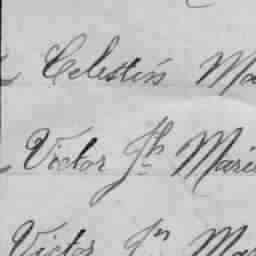 Celestin Ma
Victor Jh Marie
Victor Jn Ma